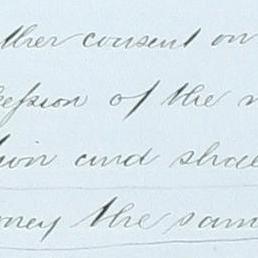 ther consent on
session of the
tion and shal
oney the sam